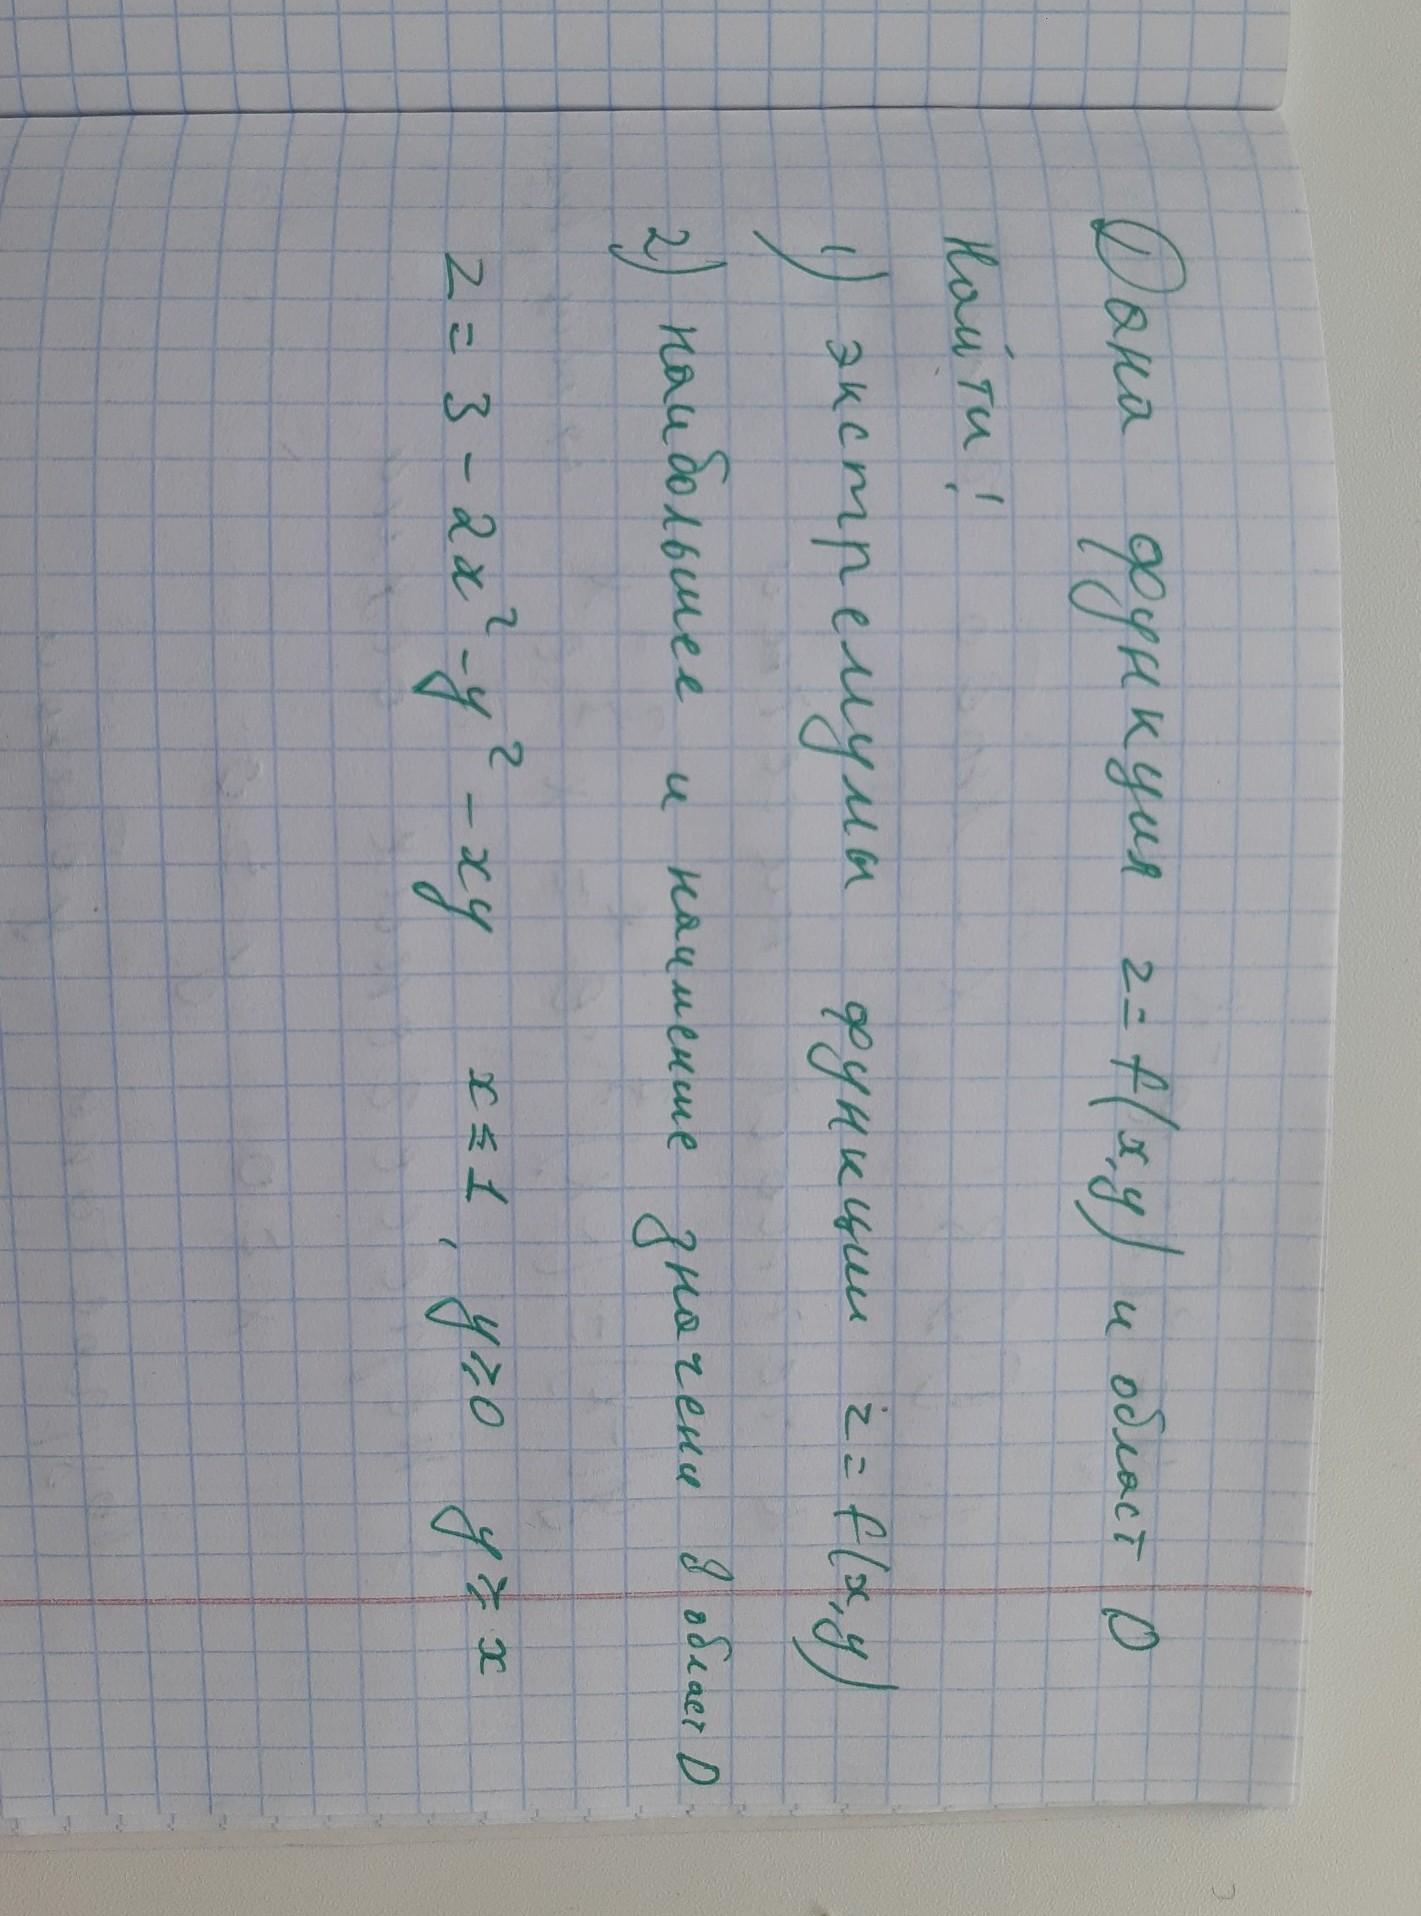 Дана функция z = f(x,y) и област D
Найти!
1) экстремумы функции z = f(x,y)
2) наибольшее и наименше значени в област D
z = 3 - 2x² - y² - xy x ≤ 1, y ≥ 0 y ≥ x